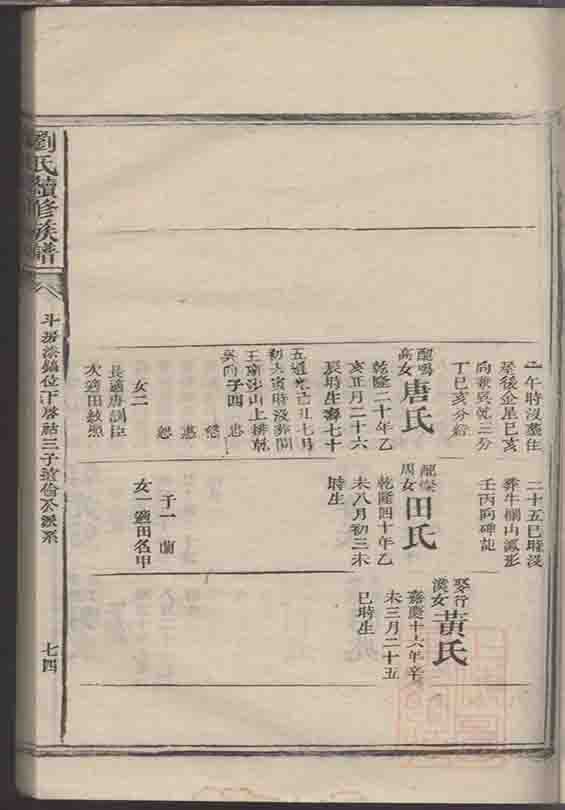 二午時沒墓住
塟後金星巳亥
向兼巽乾三分
丁巳亥分經
配鳴
高女
唐氏
乾隆二十年乙
亥正月二十六
辰時生壽七十
五道光己丑七月
初六寅時沒葬關
王廟沙山上棑乾
巽向子四
女二
長適唐訓臣
次適田
二十五巳時沒
葬牛欄山鳳形
壬丙向碑記
配
周女
田氏
乾隆四十年乙
未八月初三未
時生
子一蘭
女一適田名甲
娶行
漢女
黃氏
嘉慶十六年辛
未三月二十五
巳時生
劉氏續修族譜
卷八
斗房添鎬位下啓祜三子道倫公派系
七四